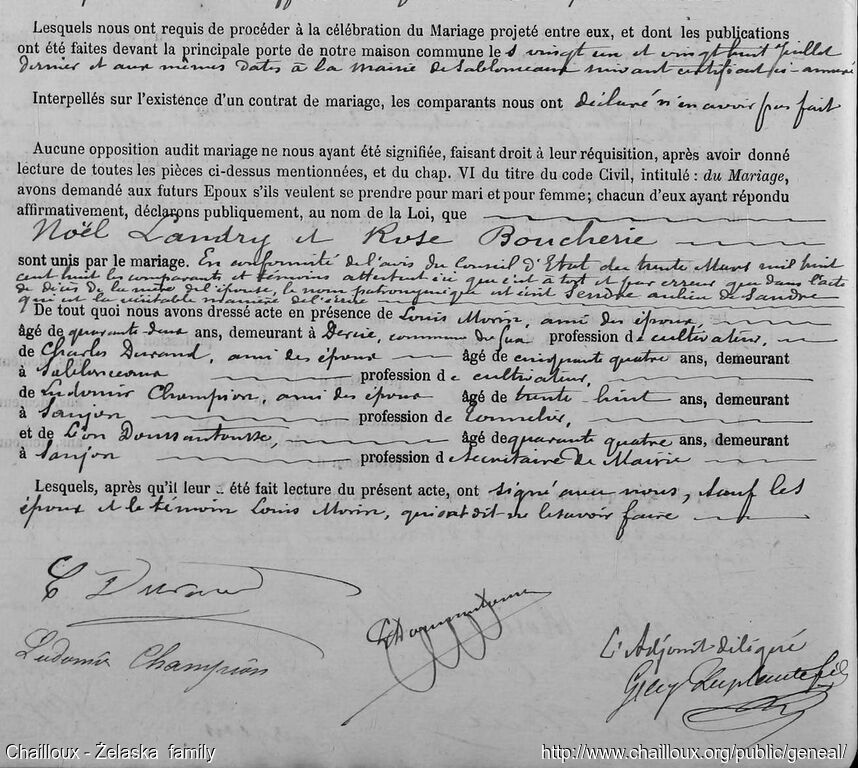 Lesquels nous ont requis de procéder à la célébration du Mariage projeté entre eux, et dont les publications
ont été faites devant la principale porte de notre maison commune le s vingt un et vingt huit Juillet
dernier et aux mêmes dates à la mairie de Sablonceaux suivant certificat ci-annexé
Interpellés sur l'existence d'un contrat de mariage, les comparants nous ont déclaré n'en avoir pas fait
Aucune opposition audit mariage ne nous ayant été signifiée, faisant droit à leur réquisition, après avoir donné
lecture de toutes les pièces ci-dessus mentionnées, et du chap. VI du titre du code Civil, intitulé : du Mariage,
avons demandé aux futurs Epoux s'ils veulent se prendre pour mari et pour femme; chacun d'eux ayant répondu
affirmativement, déclarons publiquement, au nom de la Loi, que
Noël Landry et Rose Boucherie
sont unis par le mariage. En conformité de l'avis du Conseil d'Etat du trente Mars mil huit
cent huit les comparants et témoins attestent ici que c'est à tort et par erreur que dans l'acte
de décès de la mère de l'épouse, le nom patronymique est écrit Sendre au lieu de Sandre
qui est la véritable manière de l'écrire
De tout quoi nous avons dressé acte en présence de Louis Morin, ami des époux,
âgé de quarante deux ans, demeurant à Dercie, commune du Gua profession de cultivateur,
de Charles Durand, ami des époux âgé de cinquante quatre ans, demeurant
à Sablonceaux profession d e cultivateur,
de Ludomir Champion, ami des époux âgé de trente-huit ans, demeurant
à Saujon profession de tonnelier,
et de L'on âgé de quarante quatre ans, demeurant
à Saujon profession d e Secrétaire de Mairie
Lesquels, après qu'il leur a été fait lecture du présent acte, ont signé avec nous, sauf les
époux et le témoin Louis Morin, qui ont dit ne le savoir faire
C Durand
Ludomir Champion
L'Adjoint délégué
Chailloux - Żelaska family
http://www.chailloux.org/public/geneal/